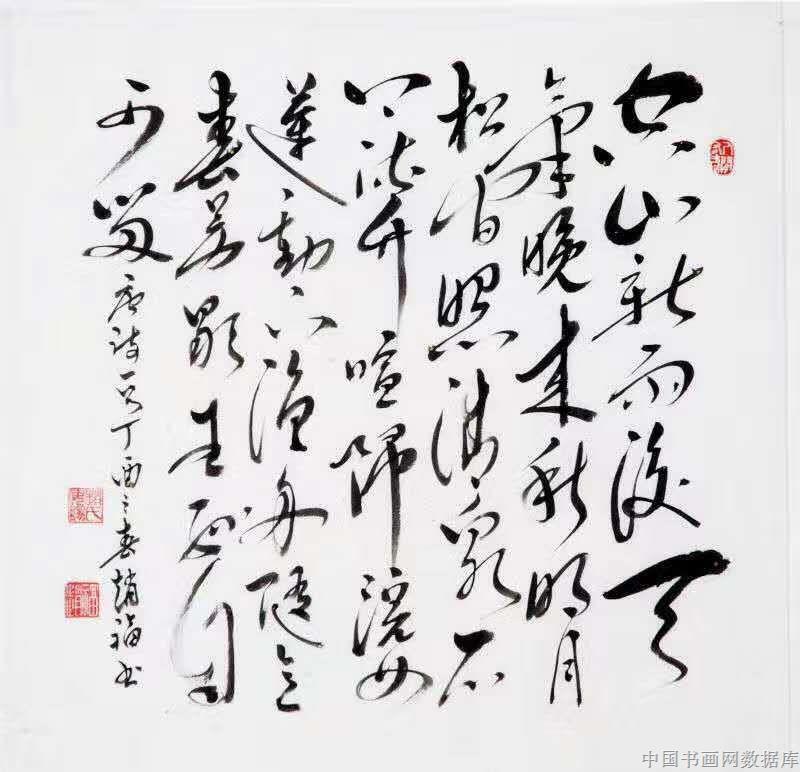 空山新雨後天
氣晚来秋明月
松间照清泉石
上流竹喧歸浣女
蓮動下漁舟随意
春芳歇王孫自
可留
唐诗一首丁酉之春趙福书
中国书画网数据库